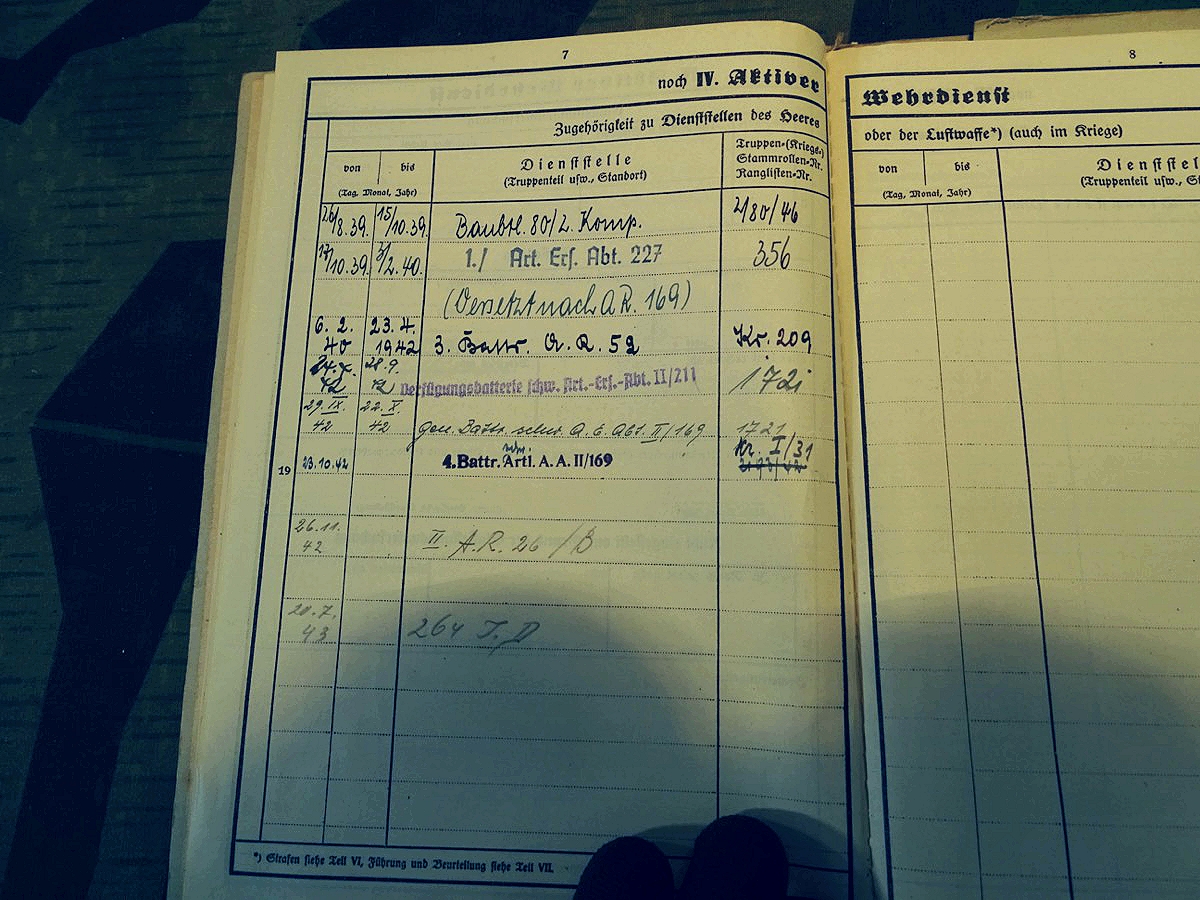 7
noch IV. Aktiver
Zugehörigkeit zu Dienststellen des Heeres
von bis
(Tag, Monat, Jahr)
Dienststelle
(Truppenteil usw., Standort)
Truppen-(Kriegs-)
Stammrollen-Nr.
Ranglisten-Nr.
26/8.39. 15/10.39. Baubtl. 80/2. Komp. 2/80/46
17/10.39. 3/2.40. 1./ Art. Ers. Abt. 227 356
(Versetzt nach A.R. 169)
6. 2. 23. 4.
40 1942 3. Battr. A. R. 52 Kr. 209
28.9.
42 42 Verfügungsbatterie schw. Art.-Ers.-Abt. II/211 172i
29.IX. 22.X.
42 42 Gen. Battr. schw. A. E. Abt. II/169 1721
19 23.10.42 4.Battr. Artl. A. A. II/169 Kr. I/31
26.11.
42 II. A.R. 26 /B
20.7.
43 264 I.D
*) Strafen siehe Teil VI, Führung und Beurteilung siehe Teil VII.
8
Wehrdienst
oder der Luftwaffe*) (auch im Kriege)
von bis
(Tag, Monat, Jahr)
Dienststel
(Truppenteil usw., St